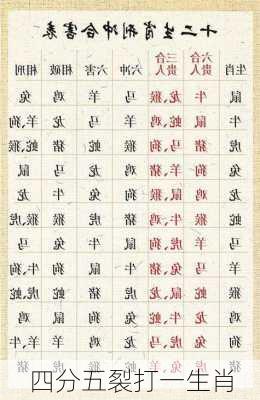 十二生肖刑冲合害表
生肖 六合贵人 三合贵人 六冲 六害 相破 相刑
鼠 牛 龙、猴 马 羊 鸡 兔
牛 鼠 蛇、鸡 羊 马 龙 羊、狗
虎 猪 马、狗 猴 蛇 猪 蛇、猴
兔 狗 羊、猪 鸡 龙 马 鼠
龙 鸡 鼠、猴 狗 兔 牛 龙
蛇 猴 牛、鸡 猪 虎 猴 猴、虎
马 羊 虎、狗 鼠 牛 兔 马
羊 马 兔、猪 牛 鼠 狗 牛、狗
猴 蛇 鼠、龙 虎 猪 蛇 蛇、虎
鸡 龙 牛、蛇 兔 狗 鼠 鸡
狗 兔 虎、马 龙 鸡 羊 牛、羊
猪 虎 兔、羊 蛇 猴 虎 猪
四分五裂打一生肖